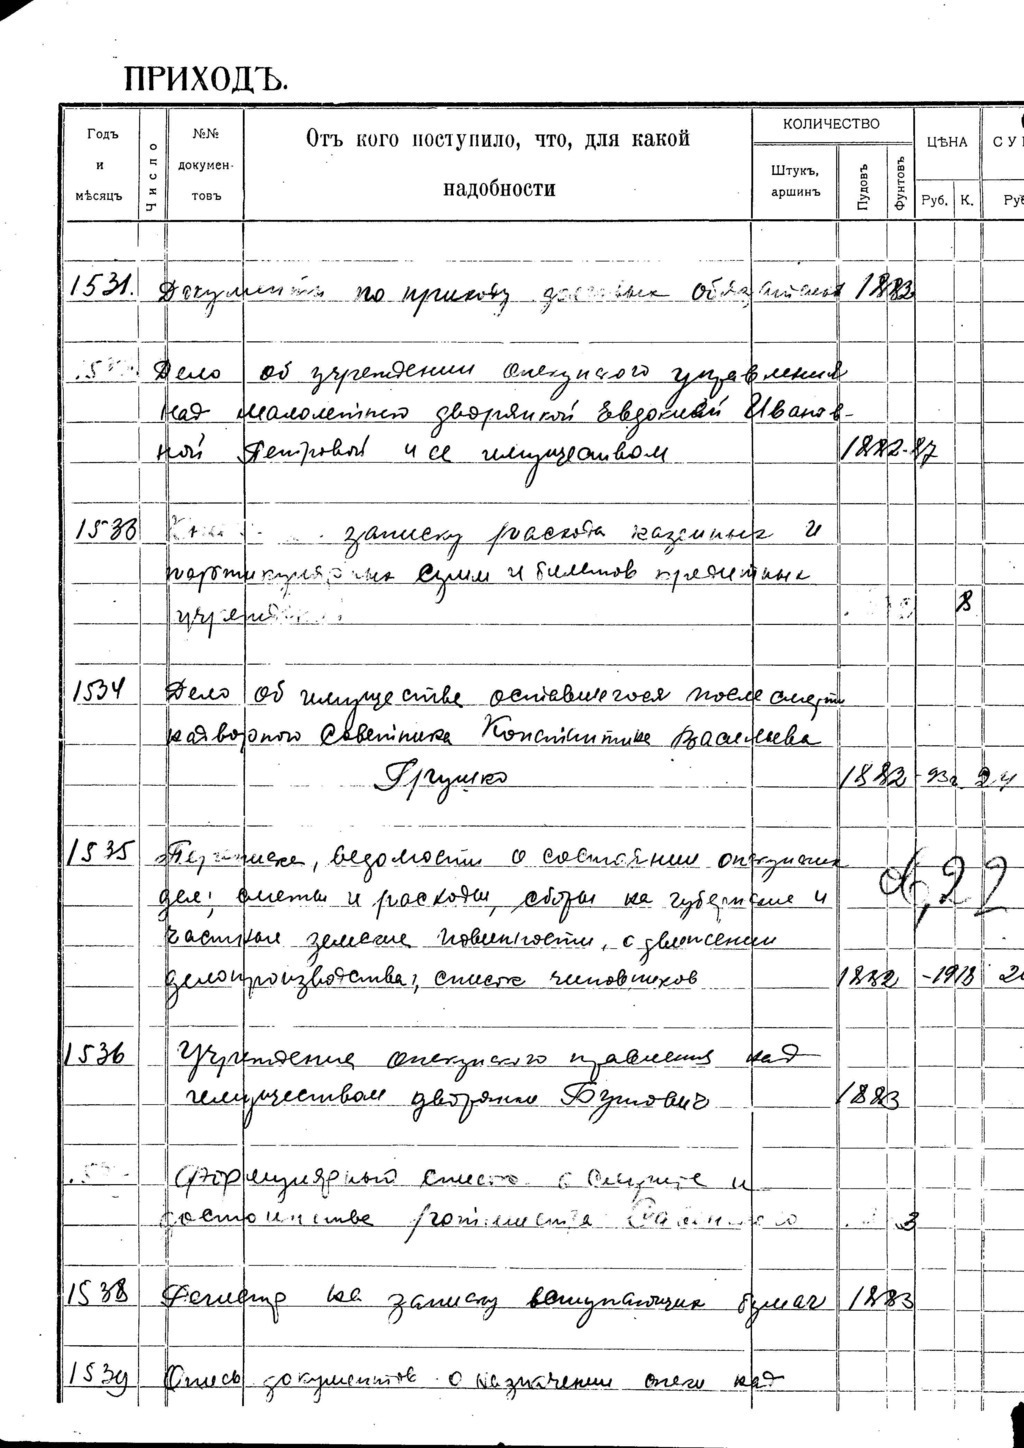 ПРИХОДЪ.
Годъ и мѣсяцъ
Число
№№ документовъ
Отъ кого поступило, что, для какой надобности
КОЛИЧЕСТВО
Штукъ, аршинъ
Пудовъ
Фунтовъ
ЦѢНА
Руб. К.
1531. Документы по приходу 1883
Дело об учреждении опекунского управления
над малолетнею дворянкой Евдокией Иванов-
ной Петровой и ее имуществом 1882-87
1533 записку расхода казенных и
партикулярных сумм и билетов кредитных
1534 Дело об имуществе оставшегося после смерти
надворного советника Константина Васильева
Грушко 1882 - 93г 24
1535 Переписка, ведомости о состоянии опекунских
дел; сметы и расходы, сборы на губернские и
частные земские повинности, о движении
делопроизводства; список чиновников 1882 - 1918
1536 Учреждение опекунского правления над
имуществом дворянки 1883
Формулярный список о службе и
достоинстве
1538 Регистр на записку вступающих бумаг 1883
1539 Опись документов о назначении опеки над